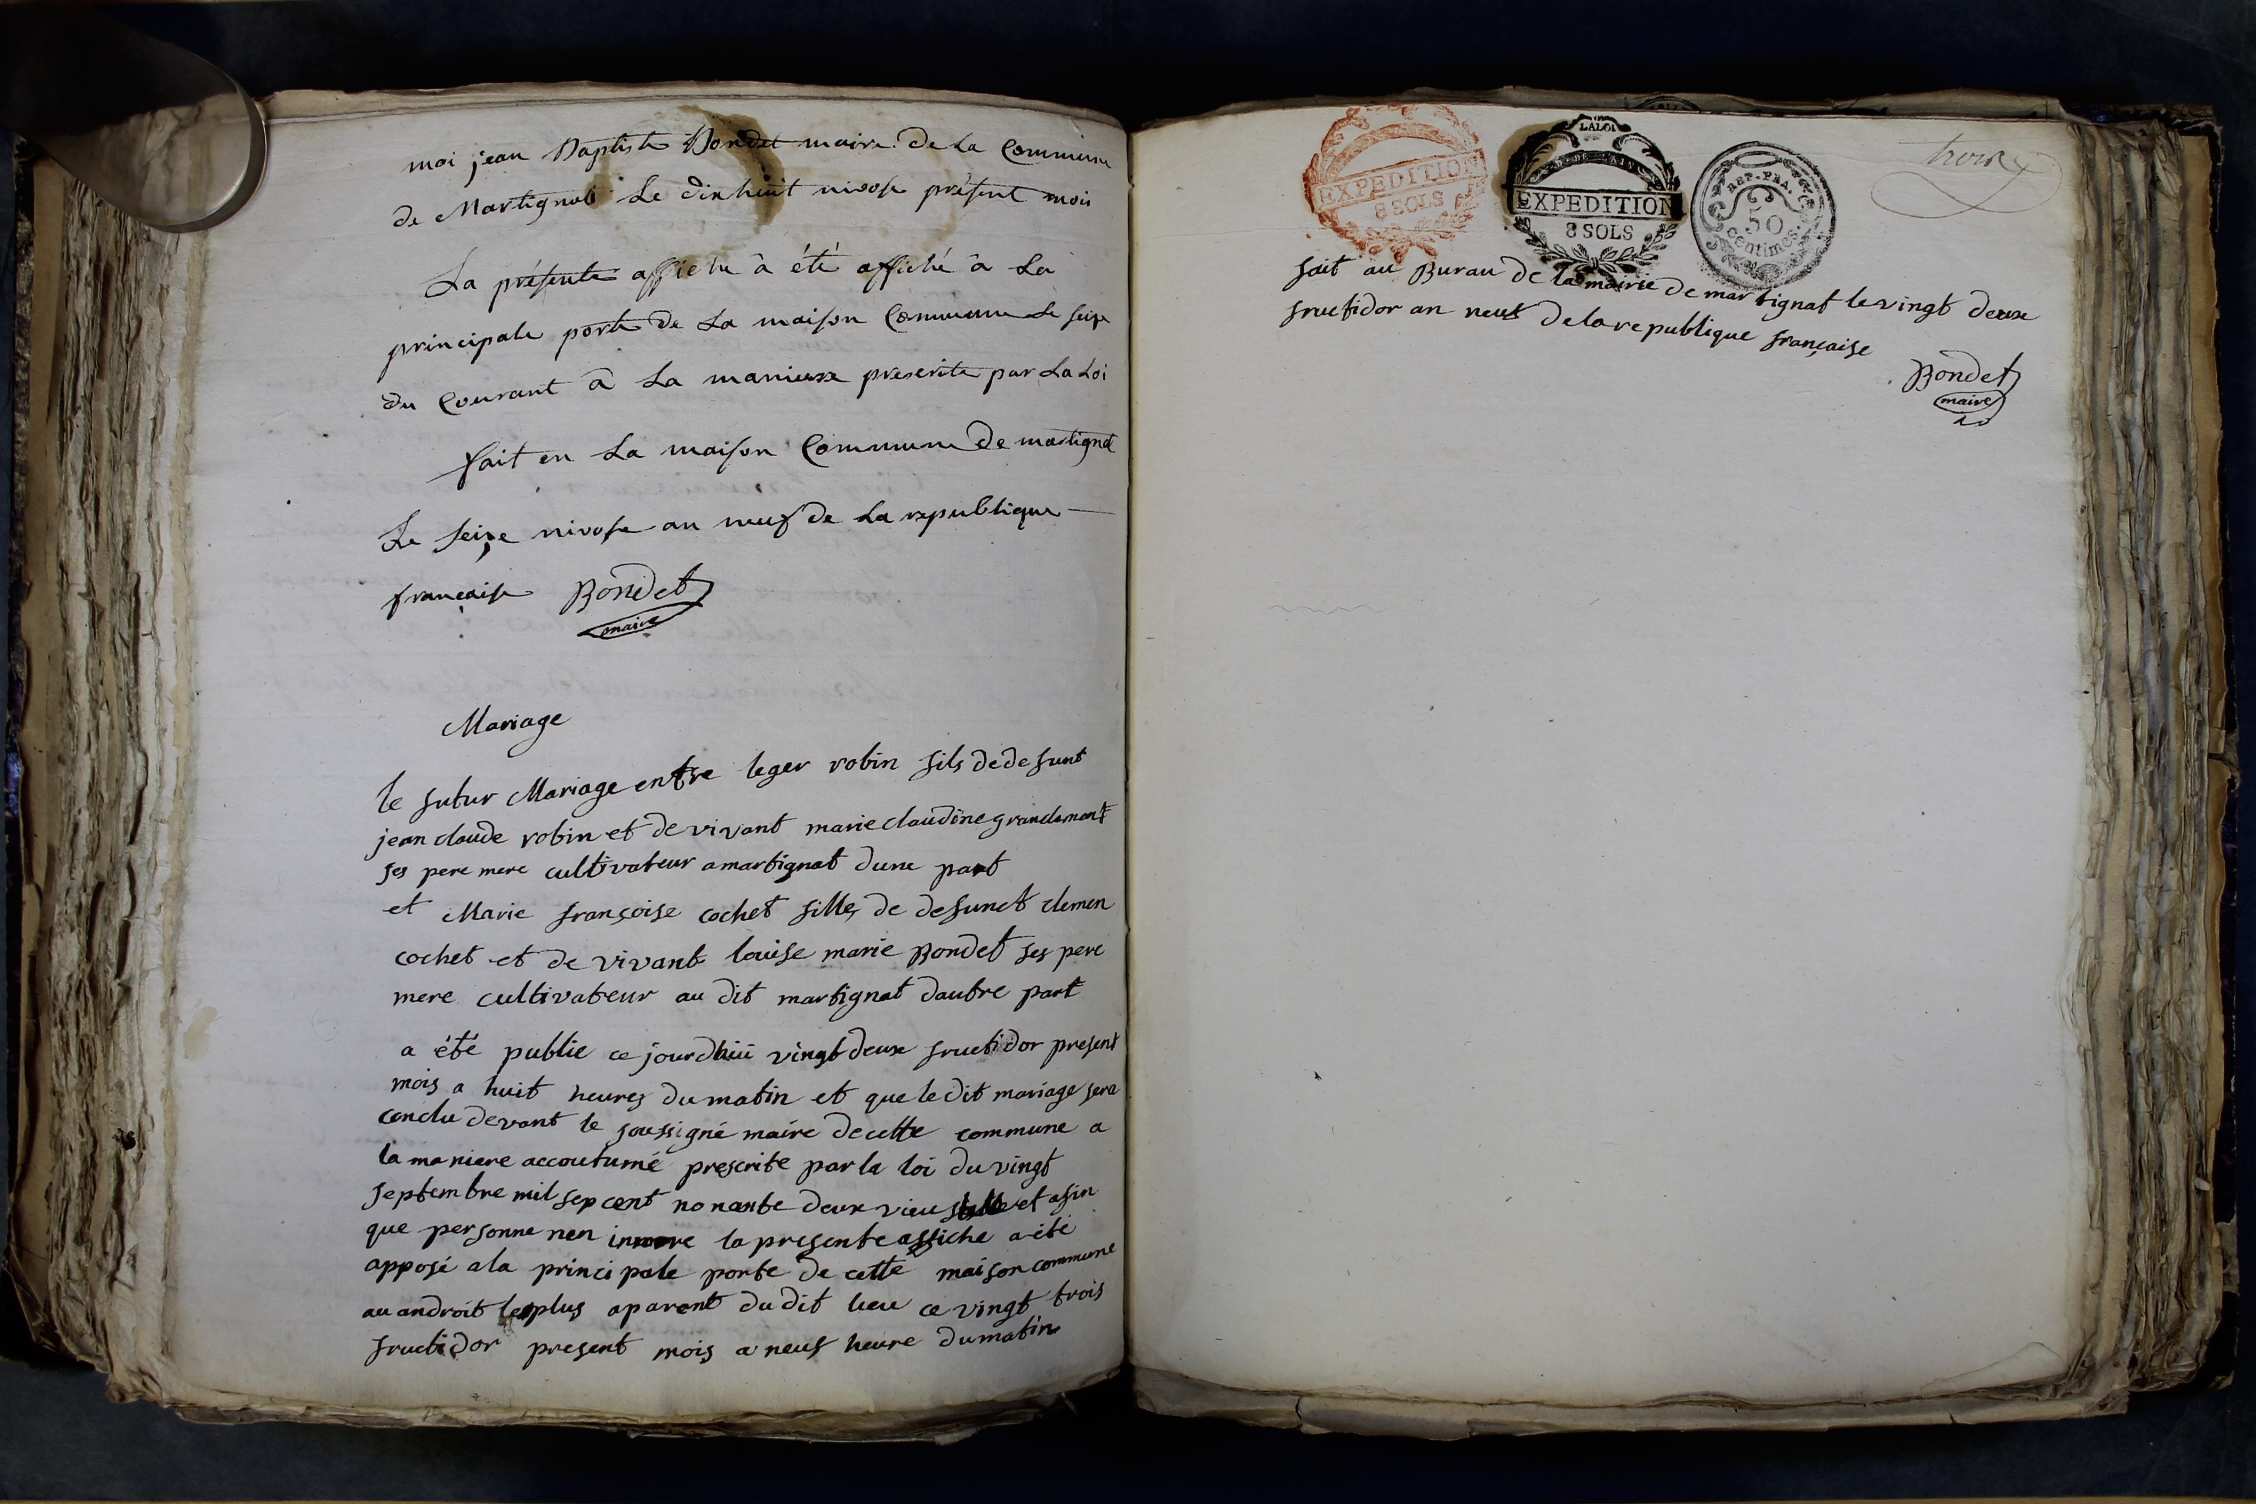 moi jean Baptiste Bondet maire de La Commune
de Martignat Le dix huit nivose présent mois
La présente affiche à été affiché à La
principale porte de La maison Commune Le seize
du Courant à La maniere prescrite par La Loi
fait en La maison Commune de martignat
Le seize nivose an neuf de La republique
francaise Bondet
maire
Mariage
le futur Mariage entre leger robin fils de defunt
jean claude robin et de vivant marie claudine grandemont
ses pere mere cultivateur a martignat dune part
et Marie françoise cochet fille de defunct clemen
cochet et de vivant louise marie Bondet ses pere
mere cultivateur au dit martignat dautre part
a été publie ce jourdhui vingt deux fructidor present
mois a huit heures du matin et que le dit mariage sera
conclu devant le soussigné maire de cette commune a
la maniere accoutumé prescrite par la loi du vingt
septembre mil sep cent nonante deux vieu stille et afin
que personne nen innore la presente affiche a été
apposé a la principale porte de cette maison commune
au androit le plus aparent du dit lieu ce vingt trois
fructidor present mois a neuf heure du matin
EXPEDITION
8 SOLS
LA LOI
EXPEDITION
8 SOLS
REP. FRA.
50
centimes.
fait au Burau de la mairie de martignat le vingt deux
fructidor an neuf de la republique française
Bondet
maire